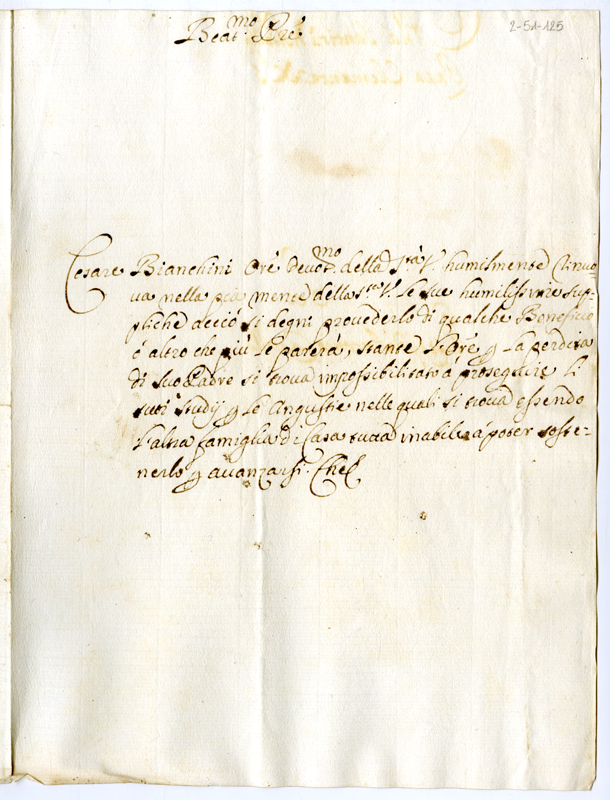 2-51-125
Beat.mo Pre
Cesare Bianchini Ore devot.mo della S.tà V. humilmente rinuo-
ua nella pia mente della S.tà V. le sue humilissime sup-
pliche acciò si degni prouederlo di qualche Beneficio
ò altro che più le parerà, stante l'Ore p la perdita
di suo Padre si troua impossibilitato à proseguire li
suoi studij p le Angustie nelle quali si troua essendo
l'altra famiglia di Casa tutta inabile à poter soste-
nerlo p auanzarsi. Che